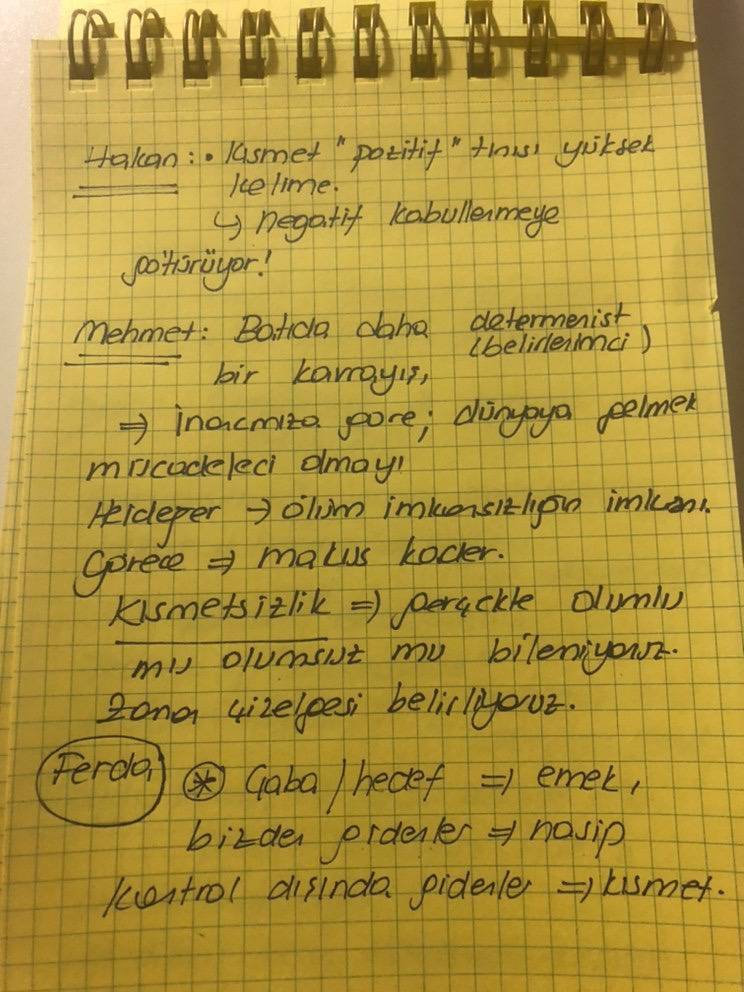 Hakan: • Kısmet "pozitif" tınısı yüksek
kelime.
↳ negatif kabullenmeye
götürüyor!
Mehmet: Batıda daha determenist
(belirlenimci)
bir kavrayış,
⇒ inancımıza göre; dünyaya gelmek
mücadeleci olmayı
Heideger → ölüm imkansızlığın imkanı.
Görece ⇒ makus kader.
Kısmetsizlik ⇒ gerçekte olumlu
mu olumsuz mu bilemiyoruz.
Zaman çizelgesi belirliyoruz.
Ferda, * Çaba / hedef ⇒ emek,
bizden gidenler ⇒ nasip
kontrol dışında gidenler ⇒ kısmet.